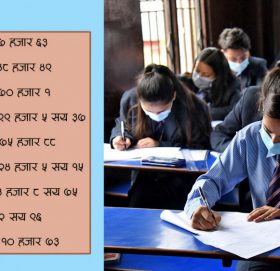 ७ हजार ६३
४८ हजार ४२
७० हजार १
२२ हजार ५ सय ३७
७५ हजार ८८
२४ हजार ५ सय १५
हजार ८ सय ७५
२ सय २६
१० हजार ७३